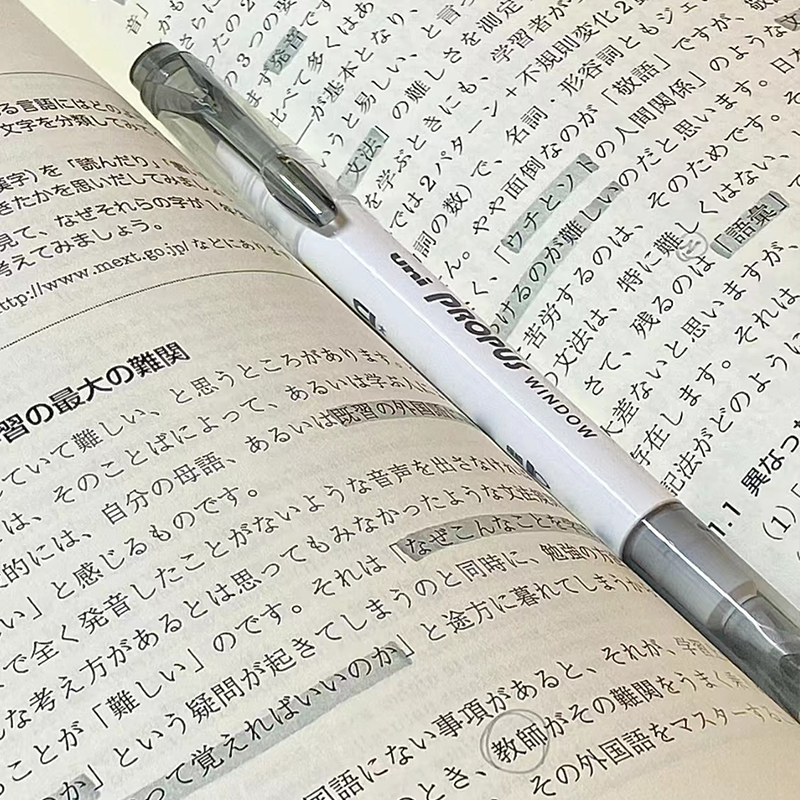 る言語には
文字を分類してみて
漢字)を「読んだり」「書
きたかを思いだしてみまし
見て、なぜそれらの字が
考えてみましょう。
http://www.mext.go.jp/ などにあります
習の最大の難関
していて難しい、と思うところがあります。
は、そのことばによって、あるいは学ぶ人に
的には、自分の母語、あるいは既習の外国語
い」と感じるものです。
で全く発音したことがないような音声を出さなけれ
な考え方があるとは思ってもみなかったような文法
ことが「難しい」のです。それは「なぜこんなことを
のか」という疑問が起きてしまうのと同時に、勉強の方
って覚えればいいのか」と途方に暮れてしまうか
国語にない事項があると、それが、学習
のとき、教師がその難関をうまく乗
その外国語をマスターする
uni PROPUS WINDOW
音」か
さらに
の3つの要
ます発音です
比べて多くはあ
が基本となり、
いうと易しい、と言っ
文法」の難しさを測定
を学ぶときにも、学習者が
では2パターン+不規則変化2
詞の数)で、名詞・形容詞ともジェ
ん。やや面倒なのが「敬語」ですが、
く、「ウチとソト」の人間関係」のような
つけるのが難しいのだと思います。日
苦労するのは、そのためです。そ
の文法は、特に難しくはない、
さて、残るのは「語彙」
大差ないと思いますが、
存在します。それは
記法がどのように
1.1 異なっ
(1)「